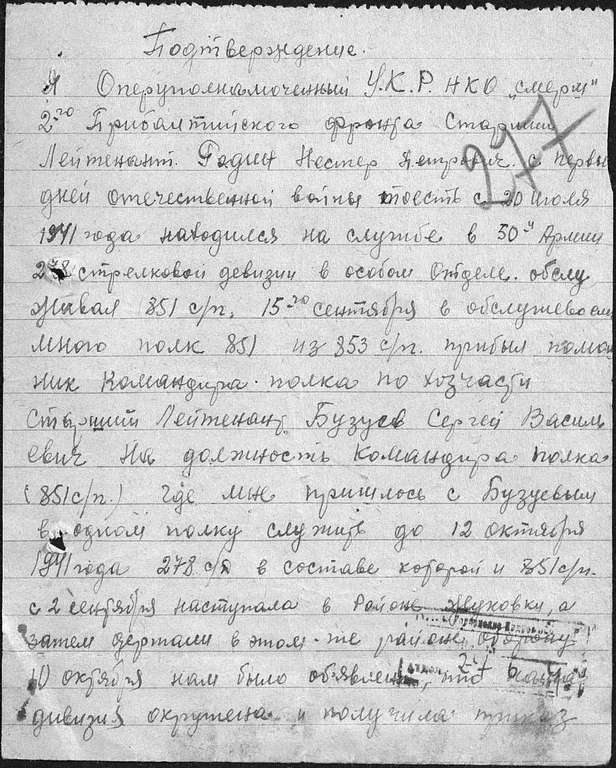 Подтверждение.
Я Оперуполномоченный У.К.Р. НКО „смерш"
2-го Прибалтийского фронта Старший
Лейтенант Годин Нестер Петрович с первых
дней отечественной войны тоесть с 20 июля
1941 года находился на службе в 30й Армии
278 стрелковой девизии в особом Отделе. обслу
живал 851 с/п. 15-го сентября в
полк 851 из 853 с/п. прибыл
ник Командира полка по хозчасти
Старший Лейтенант Бузуев Сергей Василь
евич на должность Командира полка
(851 с/п.) где мне пришлось с Бузуевым
в одном полку служить до 12 октября
1941 года 278 с/д в составе которой и 851 с/п.
с 2 сентября наступала в Районе Жуковки, а
затем держали в этом-же районе оборону
10 октября нам было объявлено, что наша
дивизия окружена и получила приказ
277